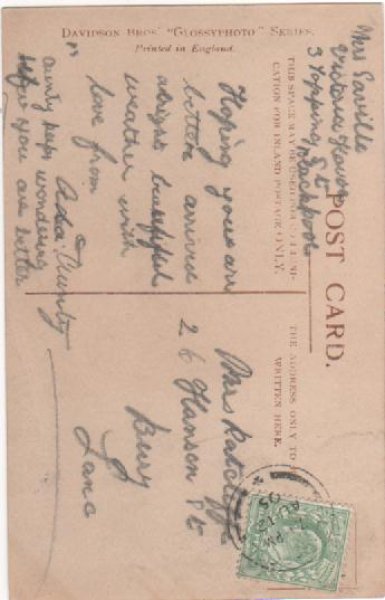 DAVIDSON BROS' "GLOSSYPHOTO" SERIES.
Printed in England.
POST CARD.
THIS SPACE MAY BE USED FOR COMMUNI-
CATION FOR INLAND POSTAGE ONLY.
THE ADDRESS ONLY TO
WRITTEN HERE.
Mrs Saville
Victoria House
3 Topping St
Blackpool
Hoping you are
better arrived
alright beautiful
weather with
love from
Ada Aunty
Aunty keeps wondering
before you are better
Mrs Ratcliffe
26 Hanson St
Bury
Lanc
PM
AU 12
05